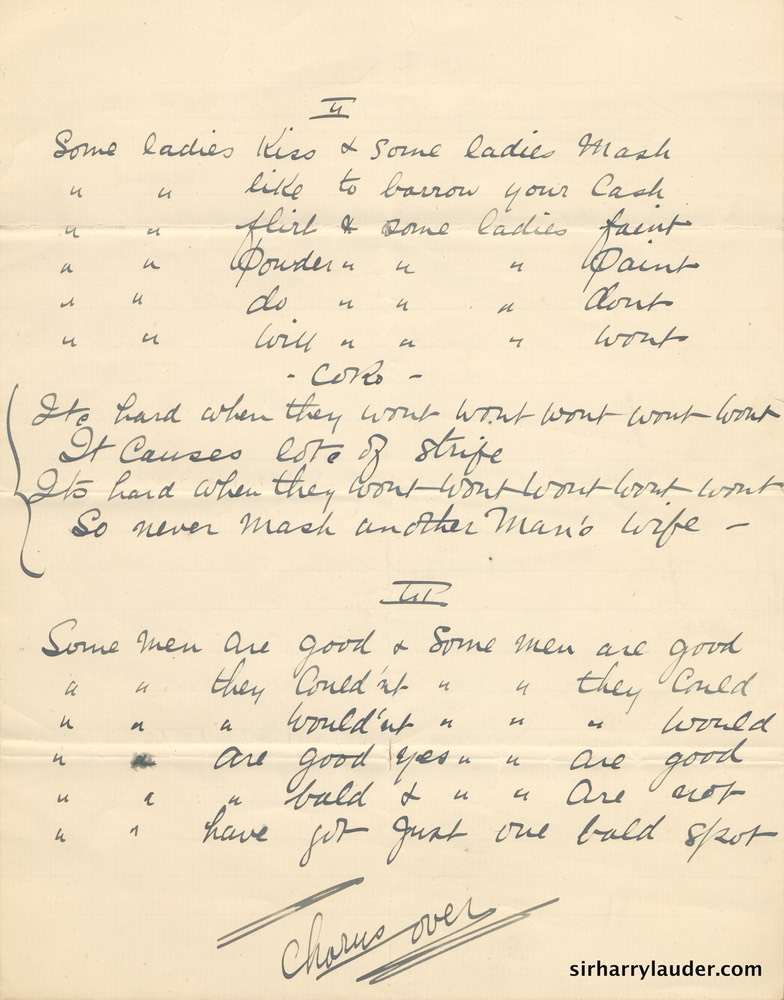 II
Some ladies Kiss & Some ladies Mash
" " like to borrow your Cash
" " flirt & some ladies faint
" " Powder " " " Paint
" " do " " " dont
" " Will " " " wont
- CORs -
Its hard when they wont wont wont wont wont
It Causes lots of strife
Its hard when they wont wont wont wont wont
So never Mash another Man's Wife -
III
Some Men are good & Some men are good
" " they Could'nt " " they Could
" " " Would'nt " " " Would
" " are good yes " " are good
" " " bald & " " are not
" " have got Just one bald spot
Chorus over
sirharrylauder.com